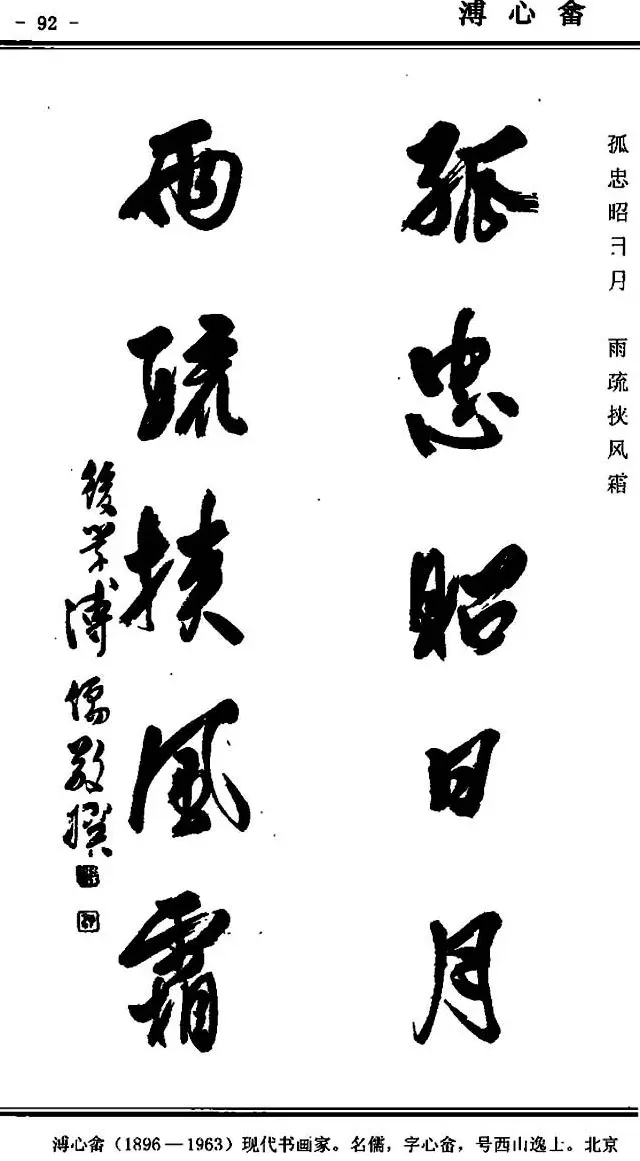 - 92 -
溥心畬
孤忠昭日月 雨疏挟风霜
孤忠昭日月
兩疏挾風霜
後学溥儒敬撰
溥心畬（1896—1963）现代书画家。名儒，字心畬，号西山逸上。北京